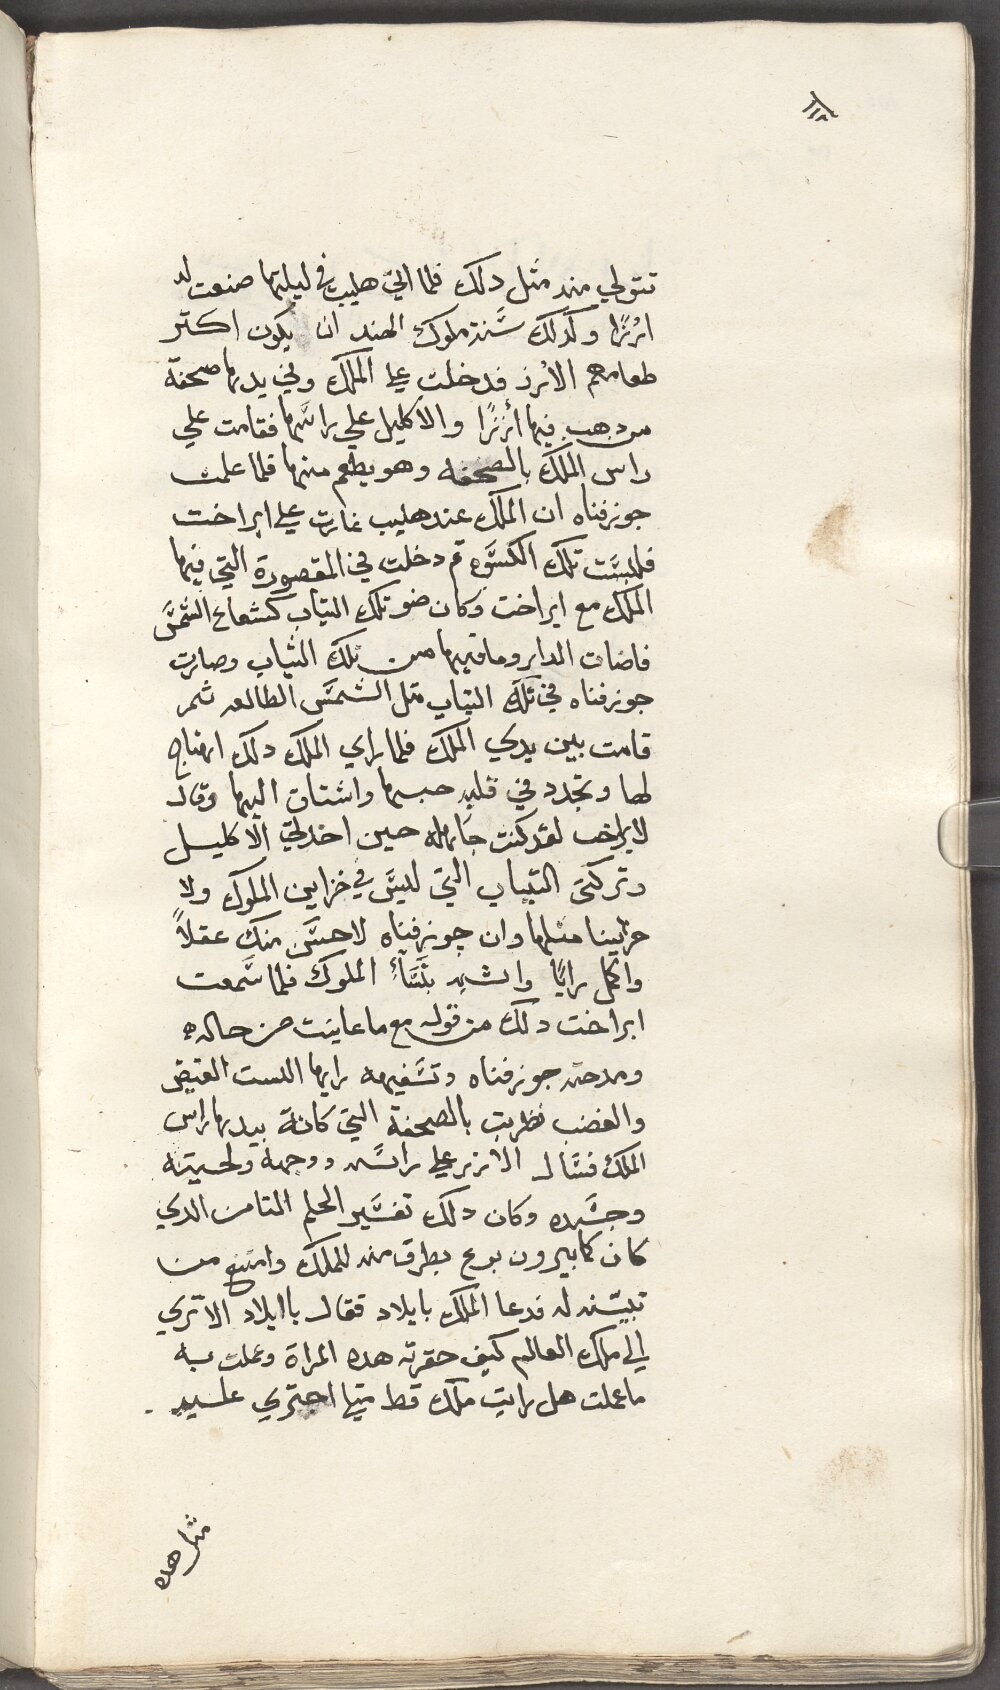 تتولي منه مثل دلك فلما اتي هليب في ليلتها صنعت له
ارزًا وكدلك سنة ملوك الهند ان يكون اكتر
طعامهم الارز فدخلت علي الملك وفي يدها صحفة
من دهب فيها أرزًا والاكليل علي راسها فقامت علي
راس الملك بالصحفه وهو يطعم منها فلما علمت
جوزفناه ان الملك عند هليب غارت علي ايراخت
فلبست تلك الكسوه تم دخلت في المقصورة التي فيها
الملك مع ايراخت وكان ضو تلك التياب كشعاع الشمس
فاضات الدار وما فيها من تلك الثياب وصارت
جوزفناه في تلك التياب متل الشمس الطالعه ثمر
قامت بين يدي الملك فلما راي الملك دلك ارهتاج
لها وتجدد في قلبه حبها واشتاق اليها وقال
لايراخت لقد كنت جاهله حين اخدتي الاكليل
وتركتي التياب التي ليس في خزاين الملوك ولا
خزاينا متلها وان جوزفناه لاحسن منك عقلاً
واكمل رايًا واشبه بنساء الملوك فلما سمعت
ايراخت دلك من قوله مع ما عاينت من حاله
ومدحته جوزفناه وتسفيهه رايها القيض
والغضب فضربت بالصحفة التي كانة بيدها راس
الملك فسال الارز علي راسه ووجهه ولحيته
وجسده وكان دلك تفسير الحلم التامن الدي
كان كابيرون بوع يطرق منه للملك وامتنع من
تبيينه له فدعا الملك بايلاد فقال يا ايلاد الا تري
الي ملك العالم كيف حقرته هده المراة وعملت به
ما عملت هل رايت ملك قط متيها اجتري عليه
مثل هده